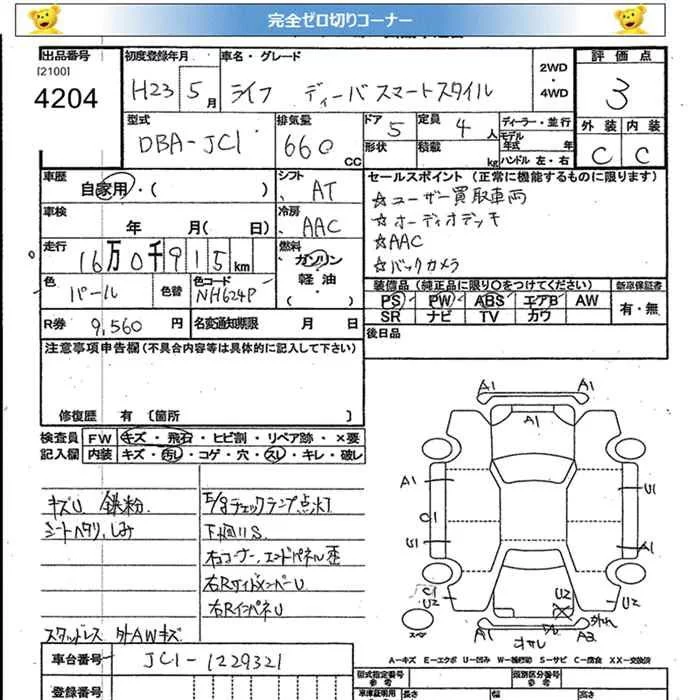 完全ゼロ切りコーナー
出品番号 初度登録年月 車名・グレード 2WD・4WD 評価点
[2100]
4204 H23 5月 ライフ ディーバ スマートスタイル 3
型式 排気量 ドア 5 定員 4人 ディーラー・並行 外装 内装
DBA-JC1 660 CC 形状 積載 kg モデル年式 年 C C
ハンドル 左・右
車歴 シフト AT セールスポイント (正常に機能するものに限ります)
自家用・( ) ☆ユーザー買取車両
車検 年 月( 日) 冷房 AAC ☆オーディオデッキ
走行 16万0千915km 燃料 ガソリン・軽油・( ) ☆AAC
☆バックカメラ
色 パール 色替 色コード NH624P 装備品 (純正品に限り○をつけてください) 新車保証書
PS PW ABS エアB AW 有・無
R券 9,560 円 名変通知期限 月 日 SR ナビ TV カワ
注意事項申告欄 (不具合内容等は具体的に記入して下さい) 後日品
修復歴 有 〔箇所 〕
検査員 FW キズ・飛石・ヒビ割・リペア跡・×要
記入欄 内装 キズ・汚し・コゲ・穴・スレ・キレ・破し
キズU 鉄粉 E/gチェックランプ点灯
シートヘタリ、しみ 下回りS
右コーナー、エンドパネル歪
右RサイドメンバーU
右RインパネU
スタッドレス 外AWキズ
A1 A1
A1
A1 U1
C1
U1 A1
C1
U2 U2 U2
A1 オサレ A2 外れ
車台番号 JC1-1229321
A-キズ E-エクボ U-凹み W-補修跡 S-サビ C-腐食 XX-交換済
型式指定番号 類別区分番号
登録番号 車庫証明用 長さ 幅 高さ